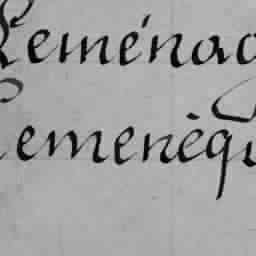 Leménag
Lemenèqu